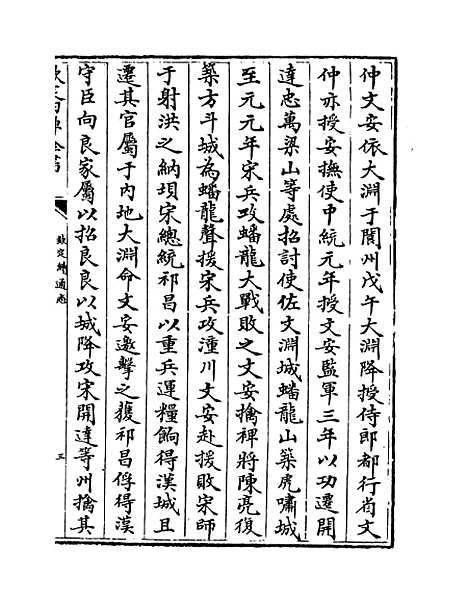 仲文安依大淵于閬州戊午大淵降授侍郎都行省文
仲亦授安撫使中統元年授文安監軍三年以功遷開
達忠萬梁山等處招討使佐文淵城蟠龍山築虎嘯城
至元元年宋兵攻蟠龍大戰敗之文安擒裨將陳亮復
築方斗城為蟠龍聲援宋兵攻潼川文安赴援敗宋師
于射洪之納垻宋總統祁昌以重兵運糧餉得漢城且
遷其官屬于内地大淵命文安邀擊之獲祁昌俘得漢
守臣向良家屬以招良良以城降攻宋開達等州擒其
欽定四庫全書
欽定續通志
三